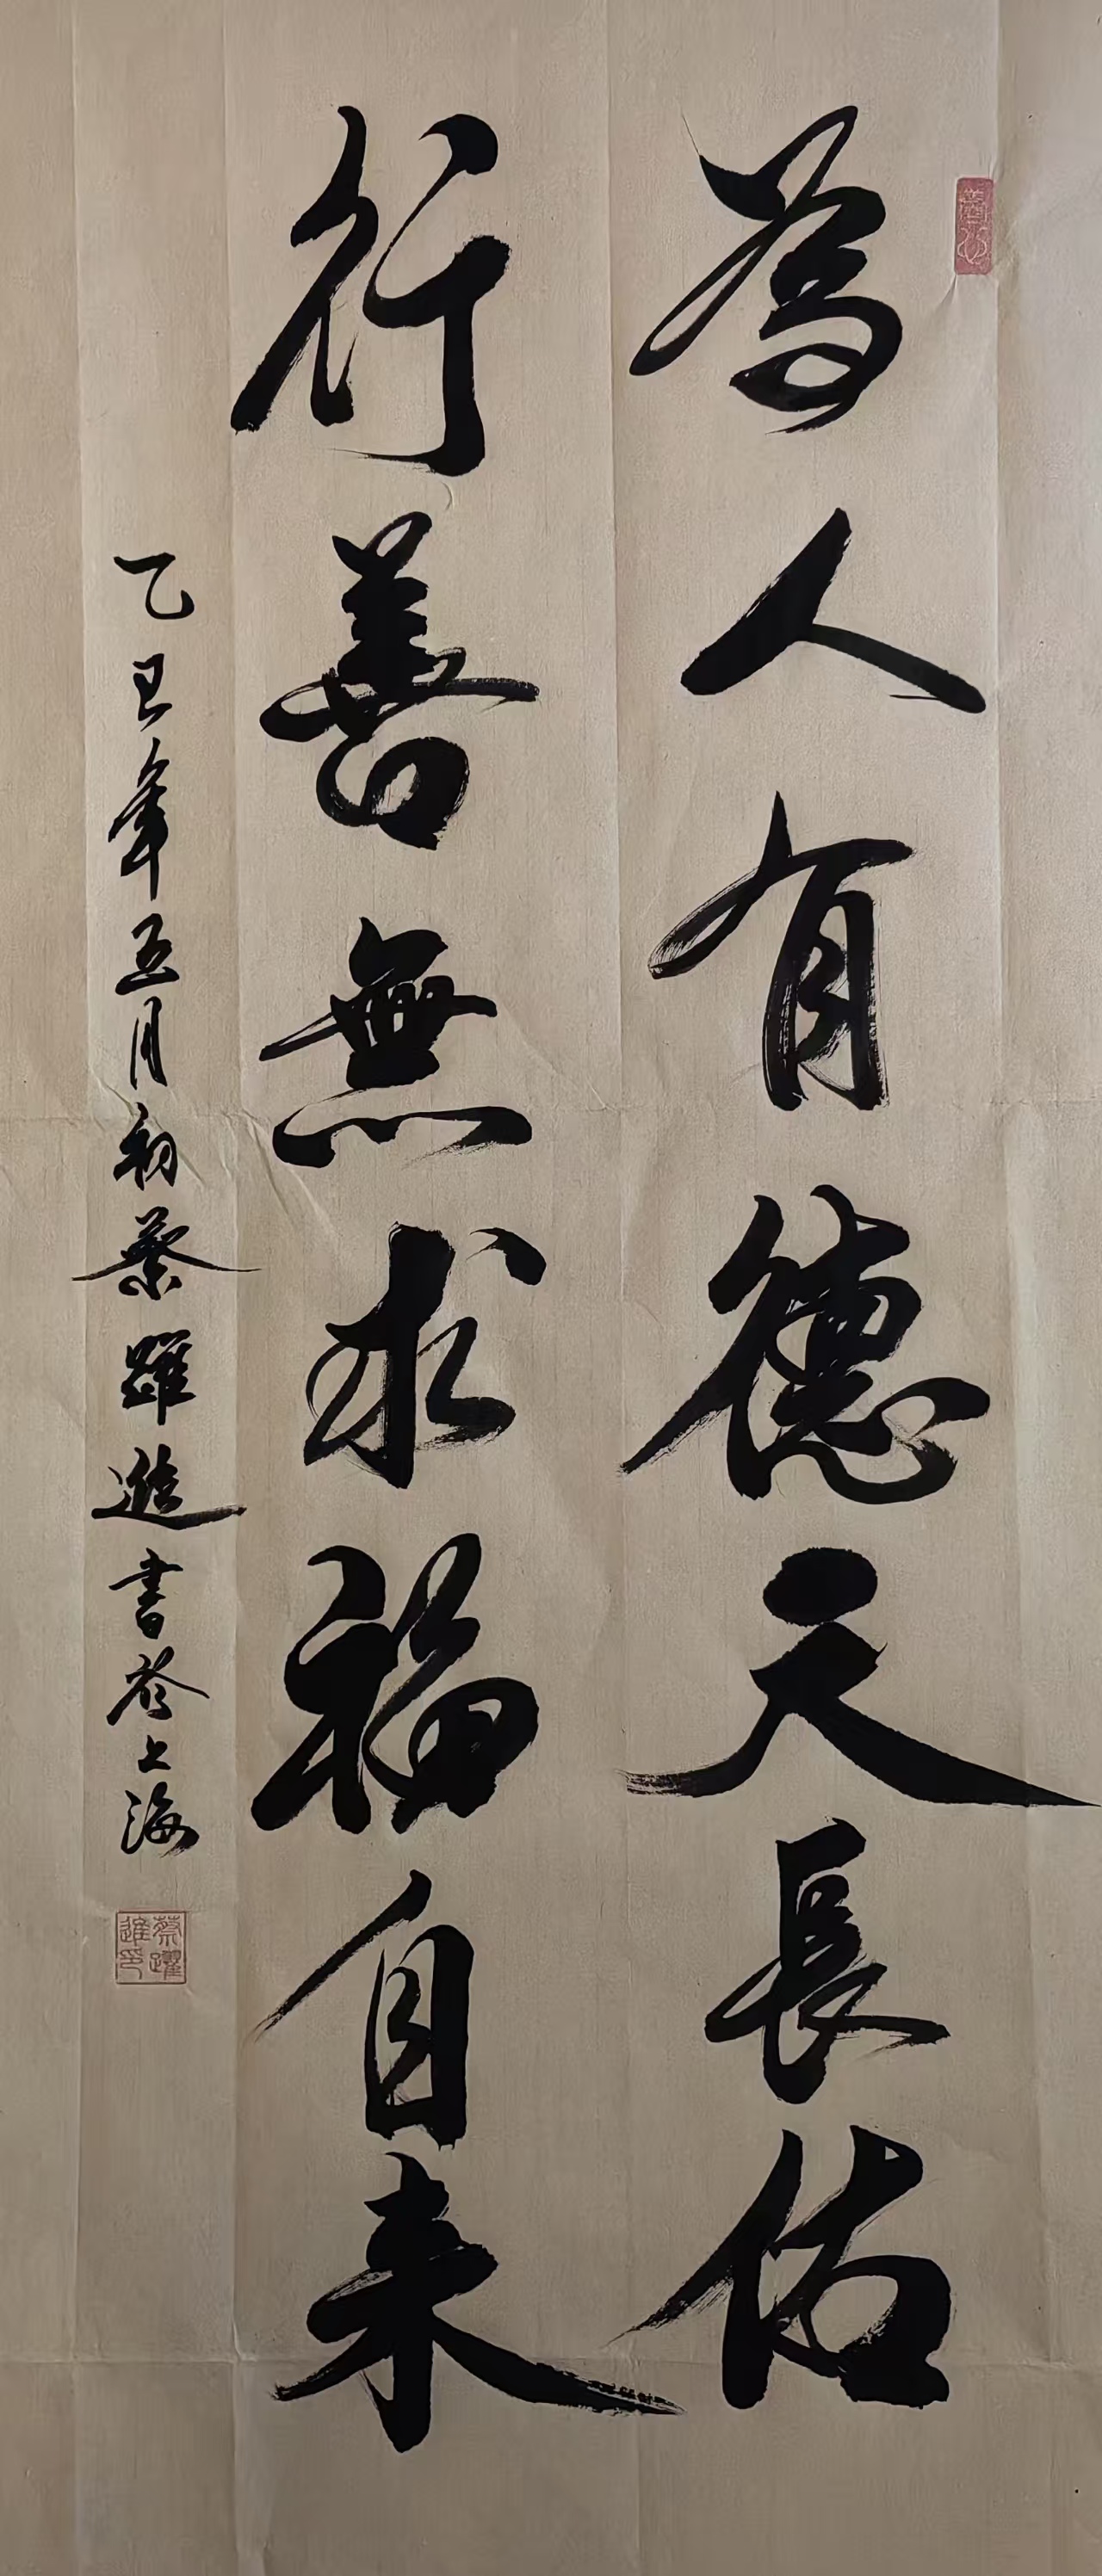 為人有德天長佑
行善無求福自来
乙巳年五月初蔡躍進書於上海
蔡躍進印